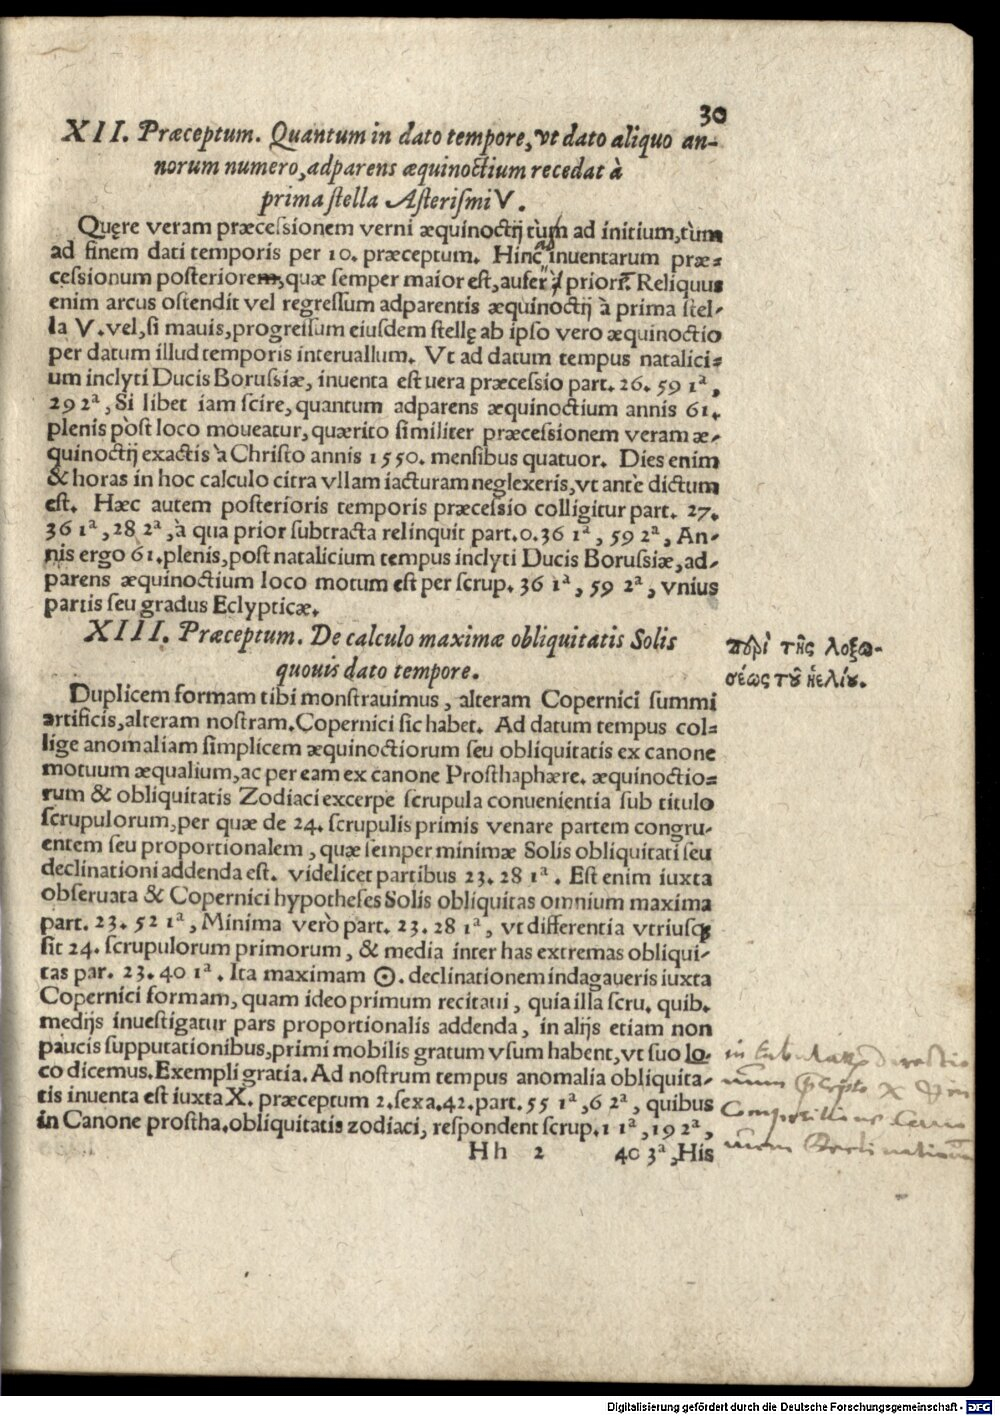 30
XII. Præceptum. Quantum in dato tempore, vt dato aliquo an-
norum numero, adparens æquinoctium recedat à
prima stella Asterismi V.
Quęre veram præcessionem verni æquinoctij tùm ad initium, tùm
ad finem dati temporis per 10. præceptum. Hinc inuentarum præ=
cessionum posteriorem, quæ semper maior est, aufer à priori. Reliquus
enim arcus ostendit vel regressum adparentis æquinoctij à prima stel-
la V. vel, si mauis, progressum eiusdem stellę ab ipso vero æquinoctio
per datum illud temporis interuallum. Vt ad datum tempus natalici=
um inclyti Ducis Borussiæ, inuenta est uera præcessio part. 26. 59 1ª,
29 2ª, Si libet iam scire, quantum adparens æquinoctium annis 61.
plenis pòst loco moueatur, quærito similiter præcessionem veram æ-
quinoctij exactis à Christo annis 1550. mensibus quatuor. Dies enim
& horas in hoc calculo citra vllam iacturam neglexeris, vt antè dictum
est. Hæc autem posterioris temporis præcessio colligitur part. 27.
36 1ª, 28 2ª, à qua prior subtracta relinquit part. 0. 36 1ª, 59 2ª, An-
nis ergo 61. plenis, post natalicium tempus inclyti Ducis Borussiæ, ad-
parens æquinoctium loco motum est per scrup. 36 1ª, 59 2ª, vnius
partis seu gradus Eclypticæ.
XIII. Præceptum. De calculo maximæ obliquitatis Solis
quouis dato tempore.
περὶ τῆς λοξώ-
σέως τοῦ ἡελίου.
Duplicem formam tibi monstrauimus, alteram Copernici summi
artificis, alteram nostram. Copernici sic habet. Ad datum tempus col=
lige anomaliam simplicem æquinoctiorum seu obliquitatis ex canone
motuum æqualium, ac per eam ex canone Prosthaphære. æquinoctio=
rum & obliquitatis Zodiaci excerpe scrupula conuenientia sub titulo
scrupulorum, per quæ de 24. scrupulis primis venare partem congru-
entem seu proportionalem, quæ semper minimæ Solis obliquitati seu
declinationi addenda est. videlicet partibus 23. 28 1ª. Est enim iuxta
obseruata & Copernici hypotheses Solis obliquitas omnium maxima
part. 23. 52 1ª, Minima verò part. 23. 28 1ª, vt differentia vtriusq;
sit 24. scrupulorum primorum, & media inter has extremas obliqui-
tas par. 23. 40 1ª. Ita maximam ☉. declinationem indagaueris iuxta
Copernici formam, quam ideo primum recitaui, quia illa scru. quib.
medijs inuestigatur pars proportionalis addenda, in alijs etiam non
paucis supputationibus, primi mobilis gratum vsum habent, vt suo lo-
co dicemus. Exempli gratia. Ad nostrum tempus anomalia obliquita-
tis inuenta est iuxta X. præceptum 2. sexa. 42. part. 55 1ª, 6 2ª, quibus
in Canone prostha. obliquitatis zodiaci, respondent scrup. 1 1ª, 19 2ª,
Hh 2 40 3ª, His
in tabularum directio
num
Compositio
num Declinationum
Digitalisierung gefördert durch die Deutsche Forschungsgemeinschaft - DFG